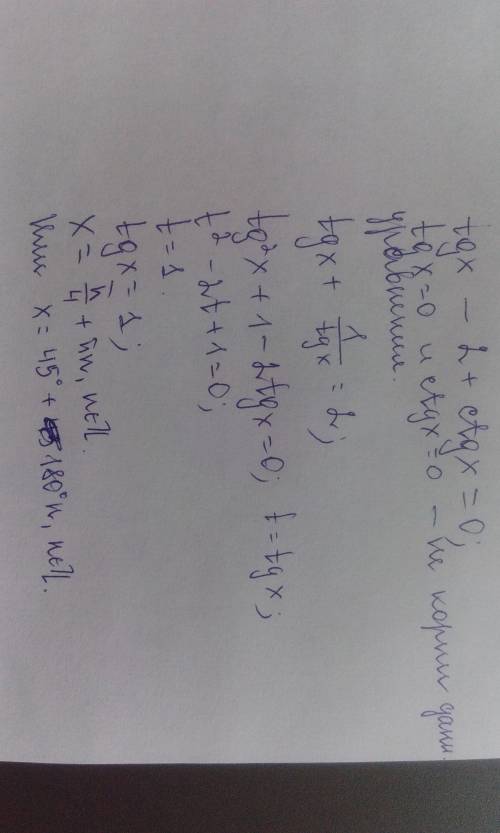 tgx − 2 + ctgx = 0;
tgx=0 и ctgx=0 − не корни данн.
уравнения.
tgx + 1/tgx = 2;
tg²x + 1 − 2tgx = 0; t = tgx;
t² − 2t + 1 = 0;
t = 1.
tgx = 1;
x = π/4 + πn, n∈Z.
или x = 45° + 180°n, n∈Z.